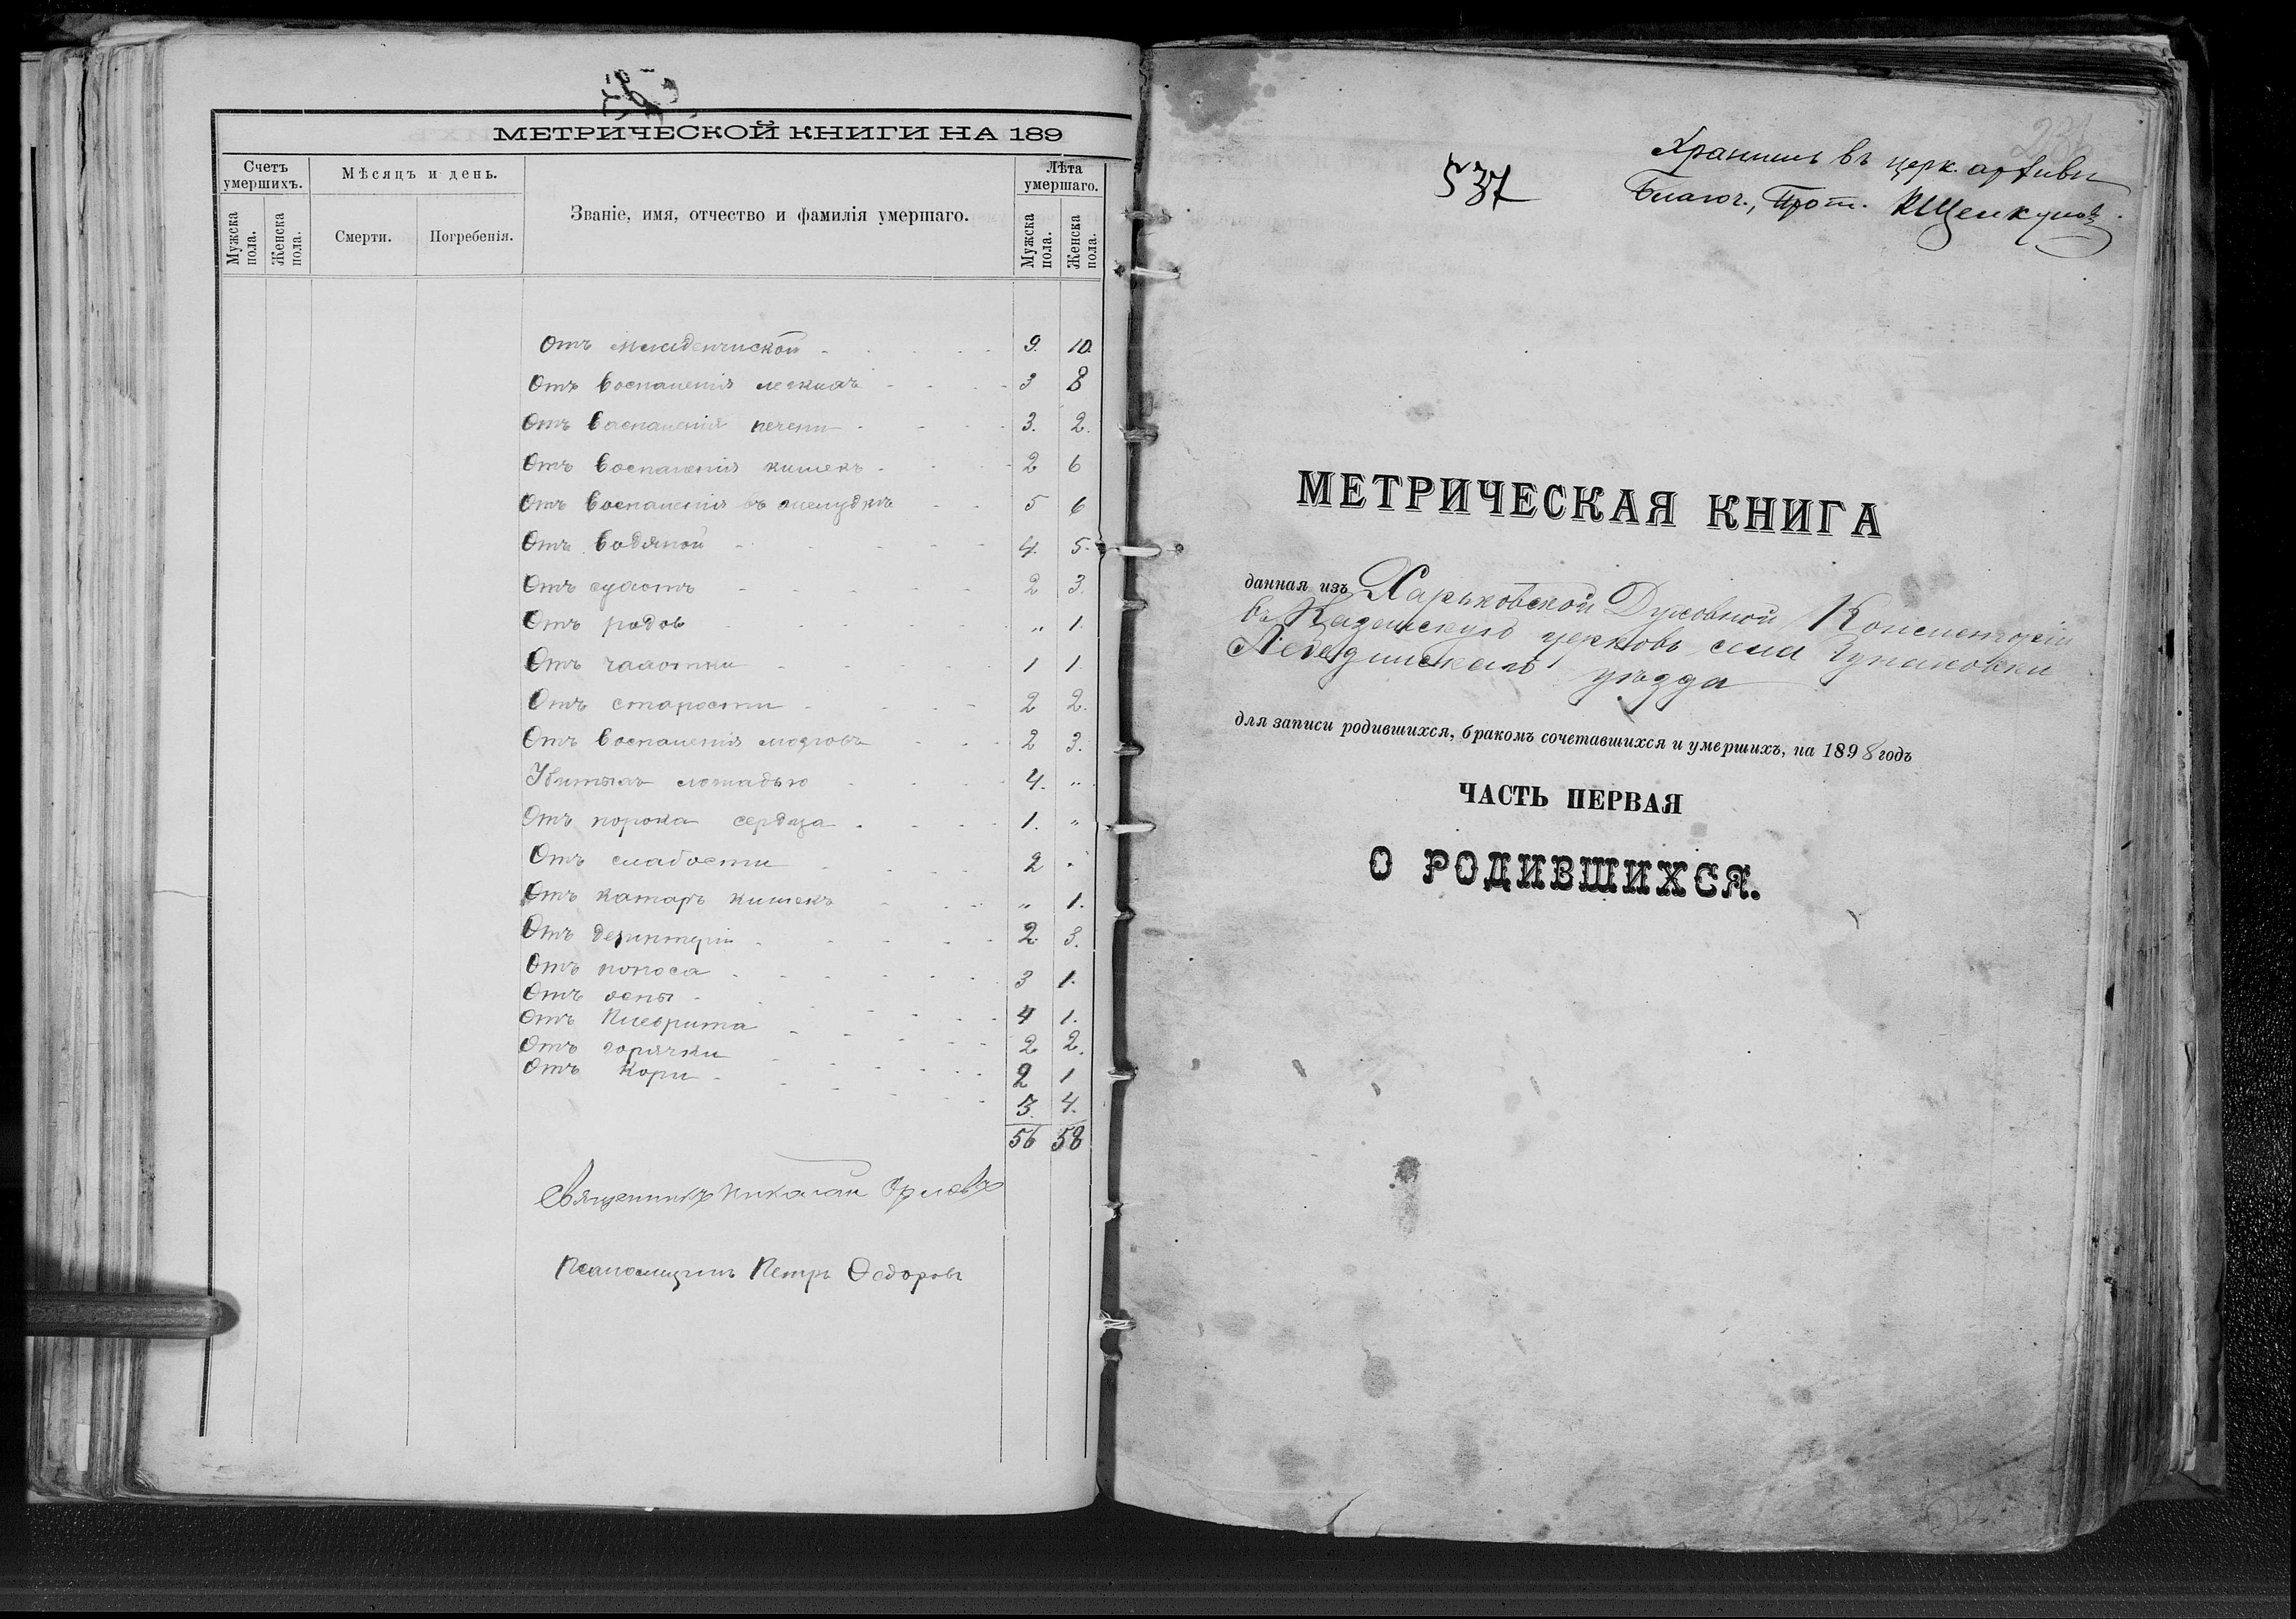 МЕТРИЧЕСКОЙ КНИГИ НА 189
Счетъ умершихъ.
Мѣсяцъ и день.
Званіе, имя, отчество и фамилія умершаго.
Лѣта умершаго.
Мужска пола.
Женска пола.
Смерти.
Погребенія.
Мужска пола.
Женска пола.
Отъ младенческой 9. 10.
Отъ воспаленія легкихъ 3 8
Отъ воспаленія печени 3. 2.
Отъ воспаленія кишекъ 2 6
Отъ воспаленія въ желудкѣ 5 6
Отъ водяной 4. 5.
Отъ 2 3.
Отъ родов „ 1.
Отъ чахотки 1 1.
Отъ старости 2 2.
Отъ воспаленія мозговъ 2 3.
Убитыхъ лошадью 4. „
Отъ порока сердца 1. „
Отъ слабости 2 „
Отъ катаръ кишекъ „ 1.
Отъ дезинтеріи 2. 3.
Отъ поноса 3 1.
Отъ оспы 4 1.
Отъ Плеврита 2 2.
Отъ горячки 2 1
Отъ кори 3. 4.
56 58
Священникъ Николай Орловъ
Псаломщикъ Петръ Ѳедоровъ
537
Хранить въ церк. архивѣ
Благоч., Прот.
МЕТРИЧЕСКАЯ КНИГА
данная изъ Харьковской Духовной Консисторіи
въ Казанскую церковь села
Лебединскаго уѣзда
для записи родившихся, бракомъ сочетавшихся и умершихъ, на 1898 годъ
ЧАСТЬ ПЕРВАЯ
О РОДИВШИХСЯ.